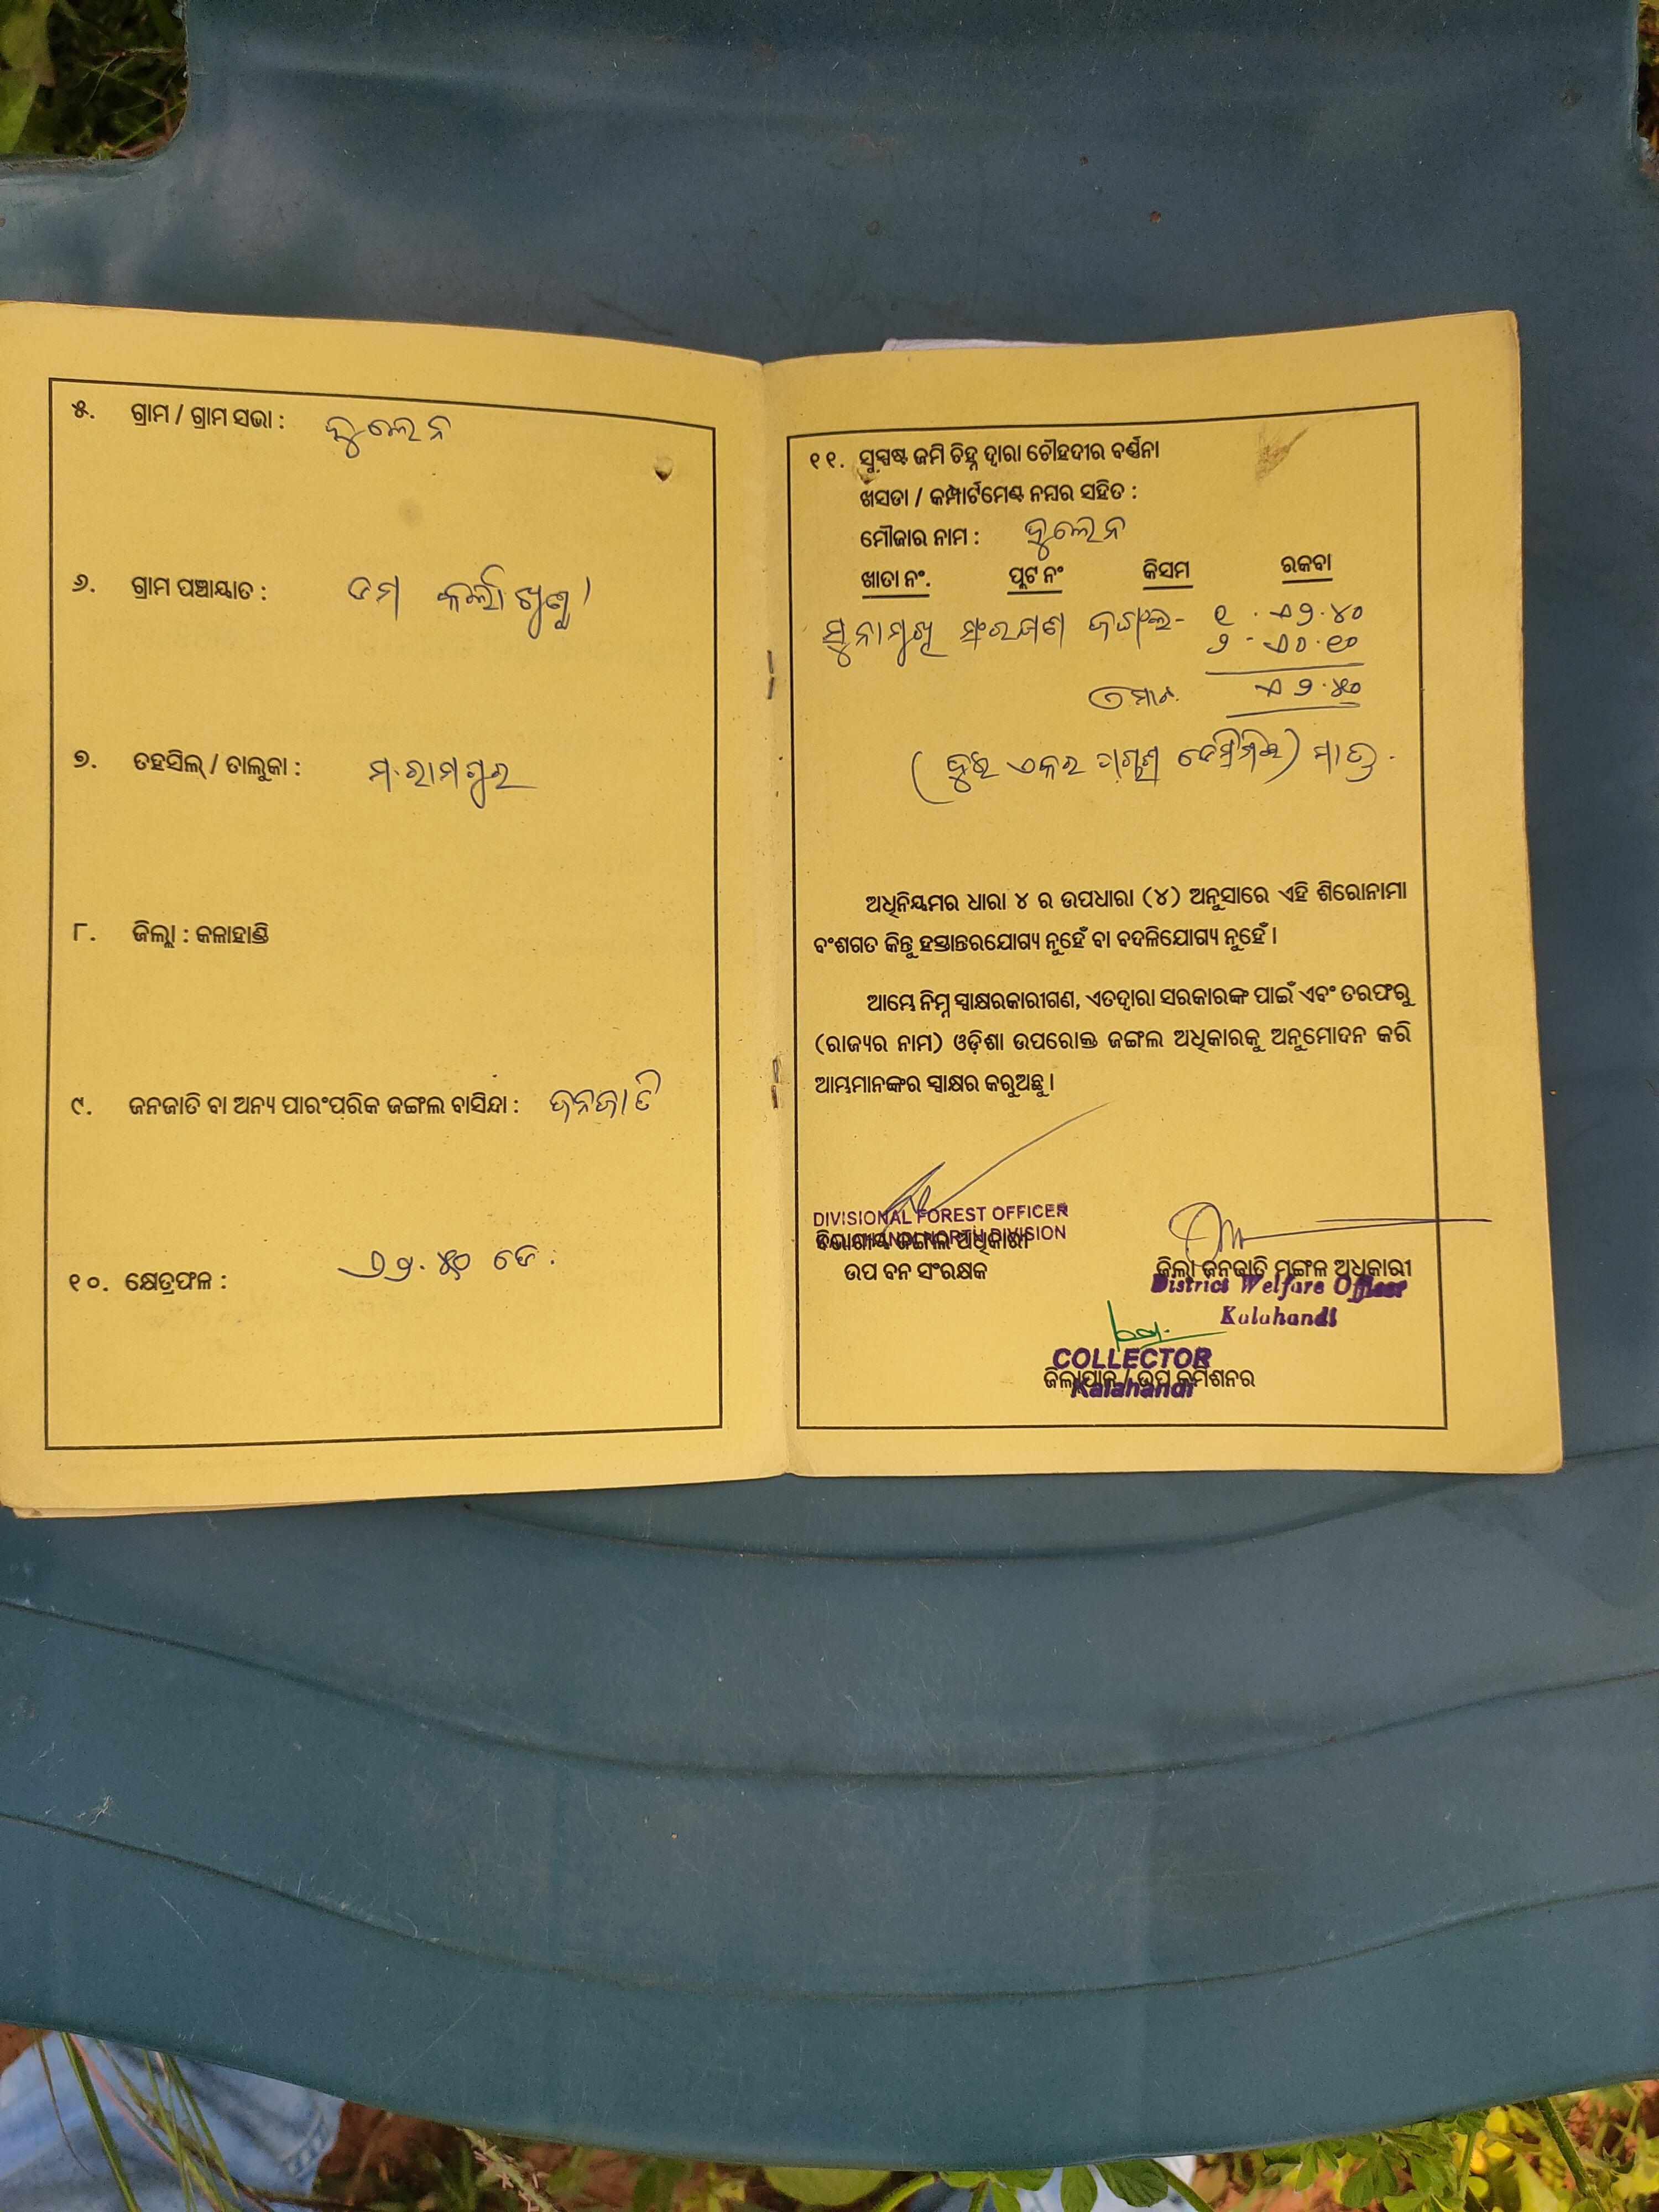 ୫. ଗ୍ରାମ / ଗ୍ରାମ ସଭା : ଦୁଲେନ
୬. ଗ୍ରାମ ପଞ୍ଚାୟାତ :
୭. ତହସିଲ୍ / ତାଲୁକା : ମ.ରାମପୁର
୮. ଜିଲ୍ଲା : କଳାହାଣ୍ଡି
୯. ଜନଜାତି ବା ଅନ୍ୟ ପାରଂପରିକ ଜଙ୍ଗଲ ବାସିନ୍ଦା : ଜନଜାତି
୧୦. କ୍ଷେତ୍ରଫଳ : ଏ୨.୫୦ ଡି.
୧୧. ସୁସ୍ପଷ୍ଟ ଜମି ଚିହ୍ନ ଦ୍ୱାରା ଚୌହଦୀର ବର୍ଣ୍ଣନା
ଖସଡା / କମ୍ପାର୍ଟମେଣ୍ଟ ନମ୍ବର ସହିତ :
ମୌଜାର ନାମ : ଦୁଲେନ
ଖାତା ନଂ. ପ୍ଲଟ ନଂ କିସମ ରକବା
ସୁନାମୁଖି ସଂରକ୍ଷଣ ଜଙ୍ଗଲ- ୧ - ଏ୨.୪୦
୨ - ଏ୦.୧୦
ମୋଟ. ଏ୨.୫୦
(ଦୁଇ ଏକର ପଚାଶ ଡେସିମିଲ) ମାତ୍ର.
ଅଧିନିୟମର ଧାରା ୪ ର ଉପଧାରା (୪) ଅନୁସାରେ ଏହି ଶିରୋନାମା
ବଂଶଗତ କିନ୍ତୁ ହସ୍ତାନ୍ତରଯୋଗ୍ୟ ନୁହେଁ ବା ବଦଳିଯୋଗ୍ୟ ନୁହେଁ ।
ଆମ୍ଭେ ନିମ୍ନ ସ୍ୱାକ୍ଷରକାରୀଗଣ, ଏତଦ୍ୱାରା ସରକାରଙ୍କ ପାଇଁ ଏବଂ ତରଫରୁ
(ରାଜ୍ୟର ନାମ) ଓଡ଼ିଶା ଉପରୋକ୍ତ ଜଙ୍ଗଲ ଅଧିକାରକୁ ଅନୁମୋଦନ କରି
ଆମ୍ଭମାନଙ୍କର ସ୍ୱାକ୍ଷର କରୁଅଛୁ ।
DIVISIONAL FOREST OFFICER
NORTH DIVISION
ବିଭାଗୀୟ ଜଙ୍ଗଲ ଅଧିକାରୀ
ଉପ ବନ ସଂରକ୍ଷକ
ଜିଲ୍ଲା ଜନଜାତି ମଙ୍ଗଳ ଅଧିକାରୀ
District Welfare Officer
Kalahandi
COLLECTOR
ଜିଲ୍ଲାପାଳ / ଉପ କମିଶନର
Kalahandi